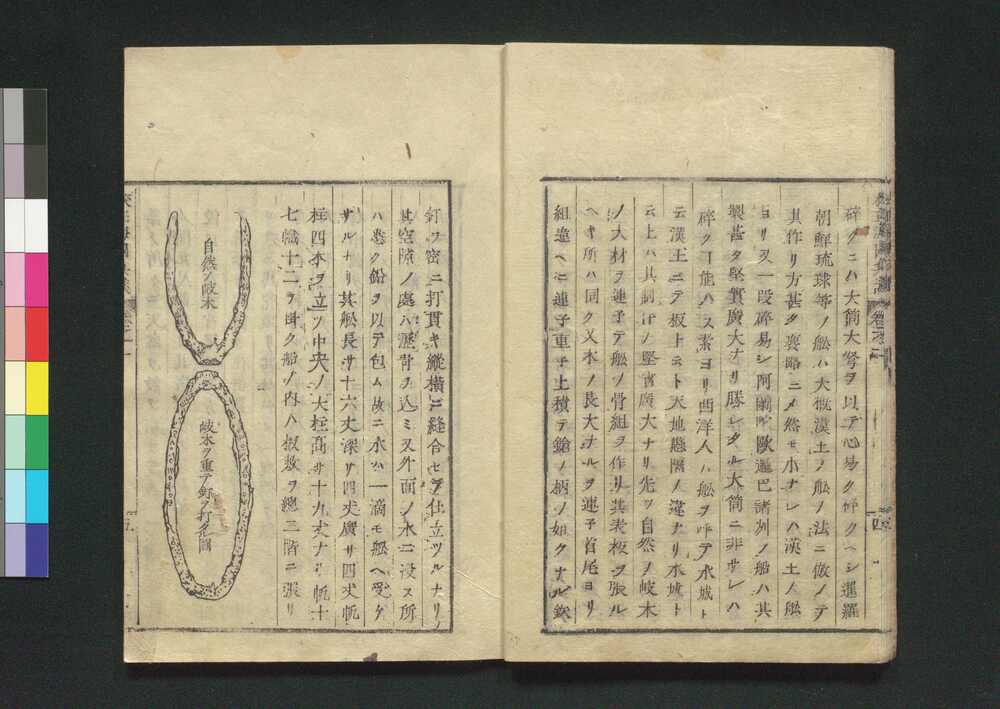 碎クニハ大筒大弩ヲ以テ心易ク碎クヘシ暹羅
朝鮮琉球等ノ舩ハ大概漢土ノ舩ノ法ニ倣ノテ
其作リ方甚タ麁略ニメ然モ小ナレハ漢土ノ舩
ヨリ又一段碎易シ阿蘭陀歐邏巴諸列ノ船ハ其
製甚タ堅實廣大ナリ勝レタル大筒ニ非サレハ
碎クヿ能ハス素ヨリ西洋人ハ舩ヲ呼テ水城ト
云漢土ニテ板ト云ト天地懸隔ノ違ナリ水城ト
云上ハ其制作ノ堅實廣大ナリ先ツ自然ノ岐木
ノ大材ヲ連子テ舩ノ骨組ヲ作リ其表板ヲ張ル
ヘキ所ハ同ク又木ノ長大ナルヲ連子首尾ヨリ
組造ヘニ連子重子上積テ鎗ノ柄ノ如クナル鉄
四
釘ヲ密ニ打貫キ縱横ニ縫合セテ仕立ツルナリ
其空隙ノ處ハ瀝青ヲ込ミ又外面ノ水ニ沒ス所
ハ悉ク鉛ヲ以テ包ム故ニ水ハ一滴モ舩ヘ受ケ
サルナリ其舩長サ十六丈深サ四丈廣サ四丈帆
柱四本ヲ立ツ中央ノ大柱高サ十九丈ナリ帆十
七幟十二ヲ掛ク船ノ内ハ板敷ヲ總三階ニ張リ
自然ノ岐木
岐木ヲ重テ釘ヲ打タル圖
五